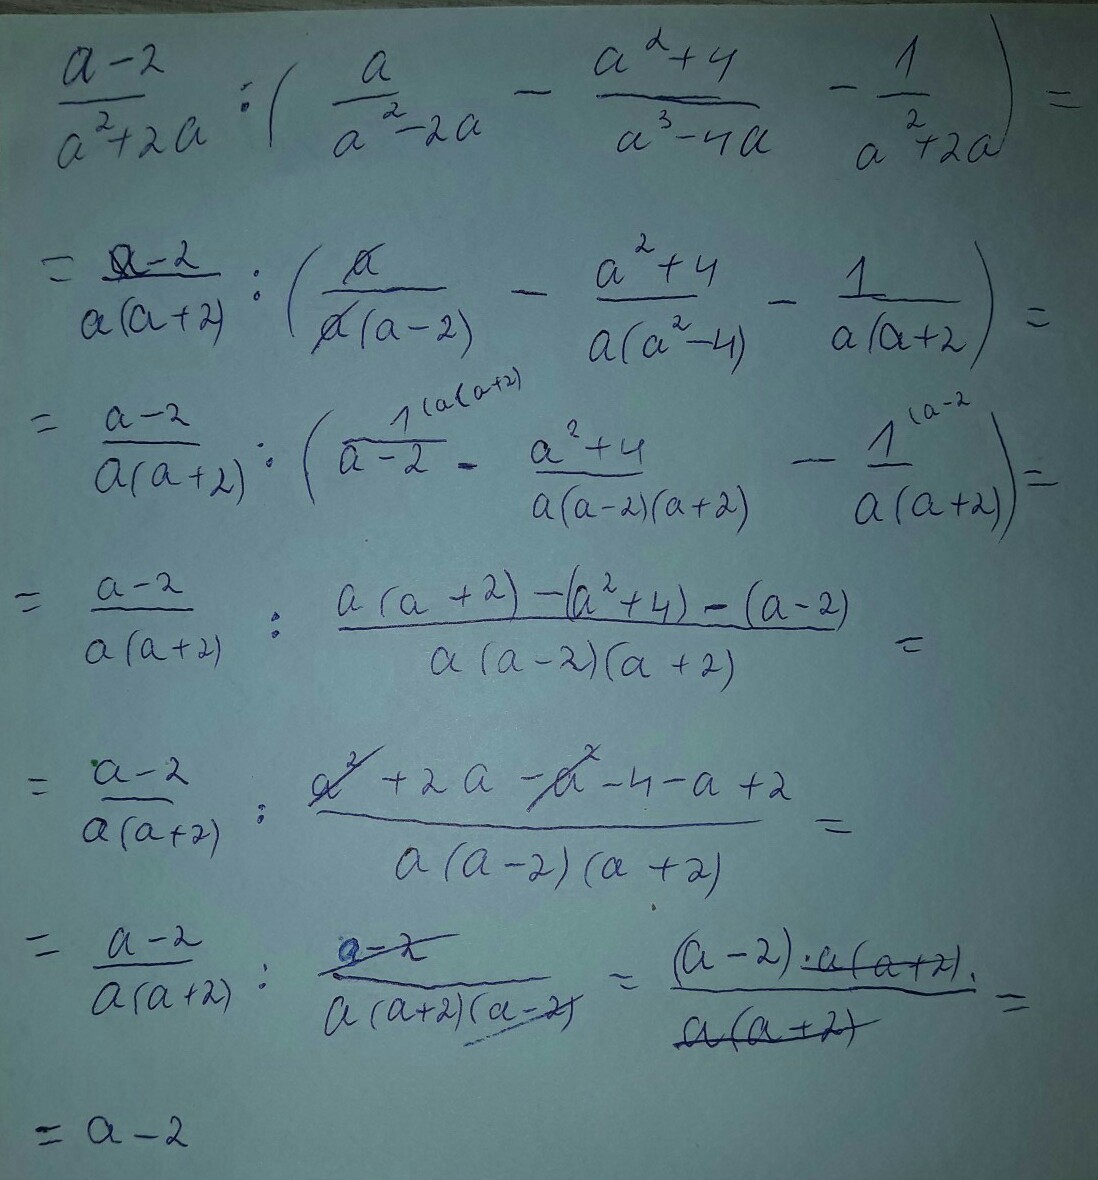 (a-2)/(a²+2a) : ( a/(a²-2a) - (a²+4)/(a³-4a) - 1/(a²+2a) ) =
= (a-2)/(a(a+2)) : ( a/(a(a-2)) - (a²+4)/(a(a²-4)) - 1/(a(a+2)) ) =
= (a-2)/(a(a+2)) : ( 1^(a(a+2)/(a-2) - (a²+4)/(a(a-2)(a+2)) - 1^(a-2/(a(a+2)) ) =
= (a-2)/(a(a+2)) : (a(a+2)-(a²+4)-(a-2))/(a(a-2)(a+2)) =
= (a-2)/(a(a+2)) : (a²+2a-a²-4-a+2)/(a(a-2)(a+2)) =
= (a-2)/(a(a+2)) : (a-2)/(a(a+2)(a-2)) = ((a-2)·a(a+2).)/(a(a+2)) =
= a-2